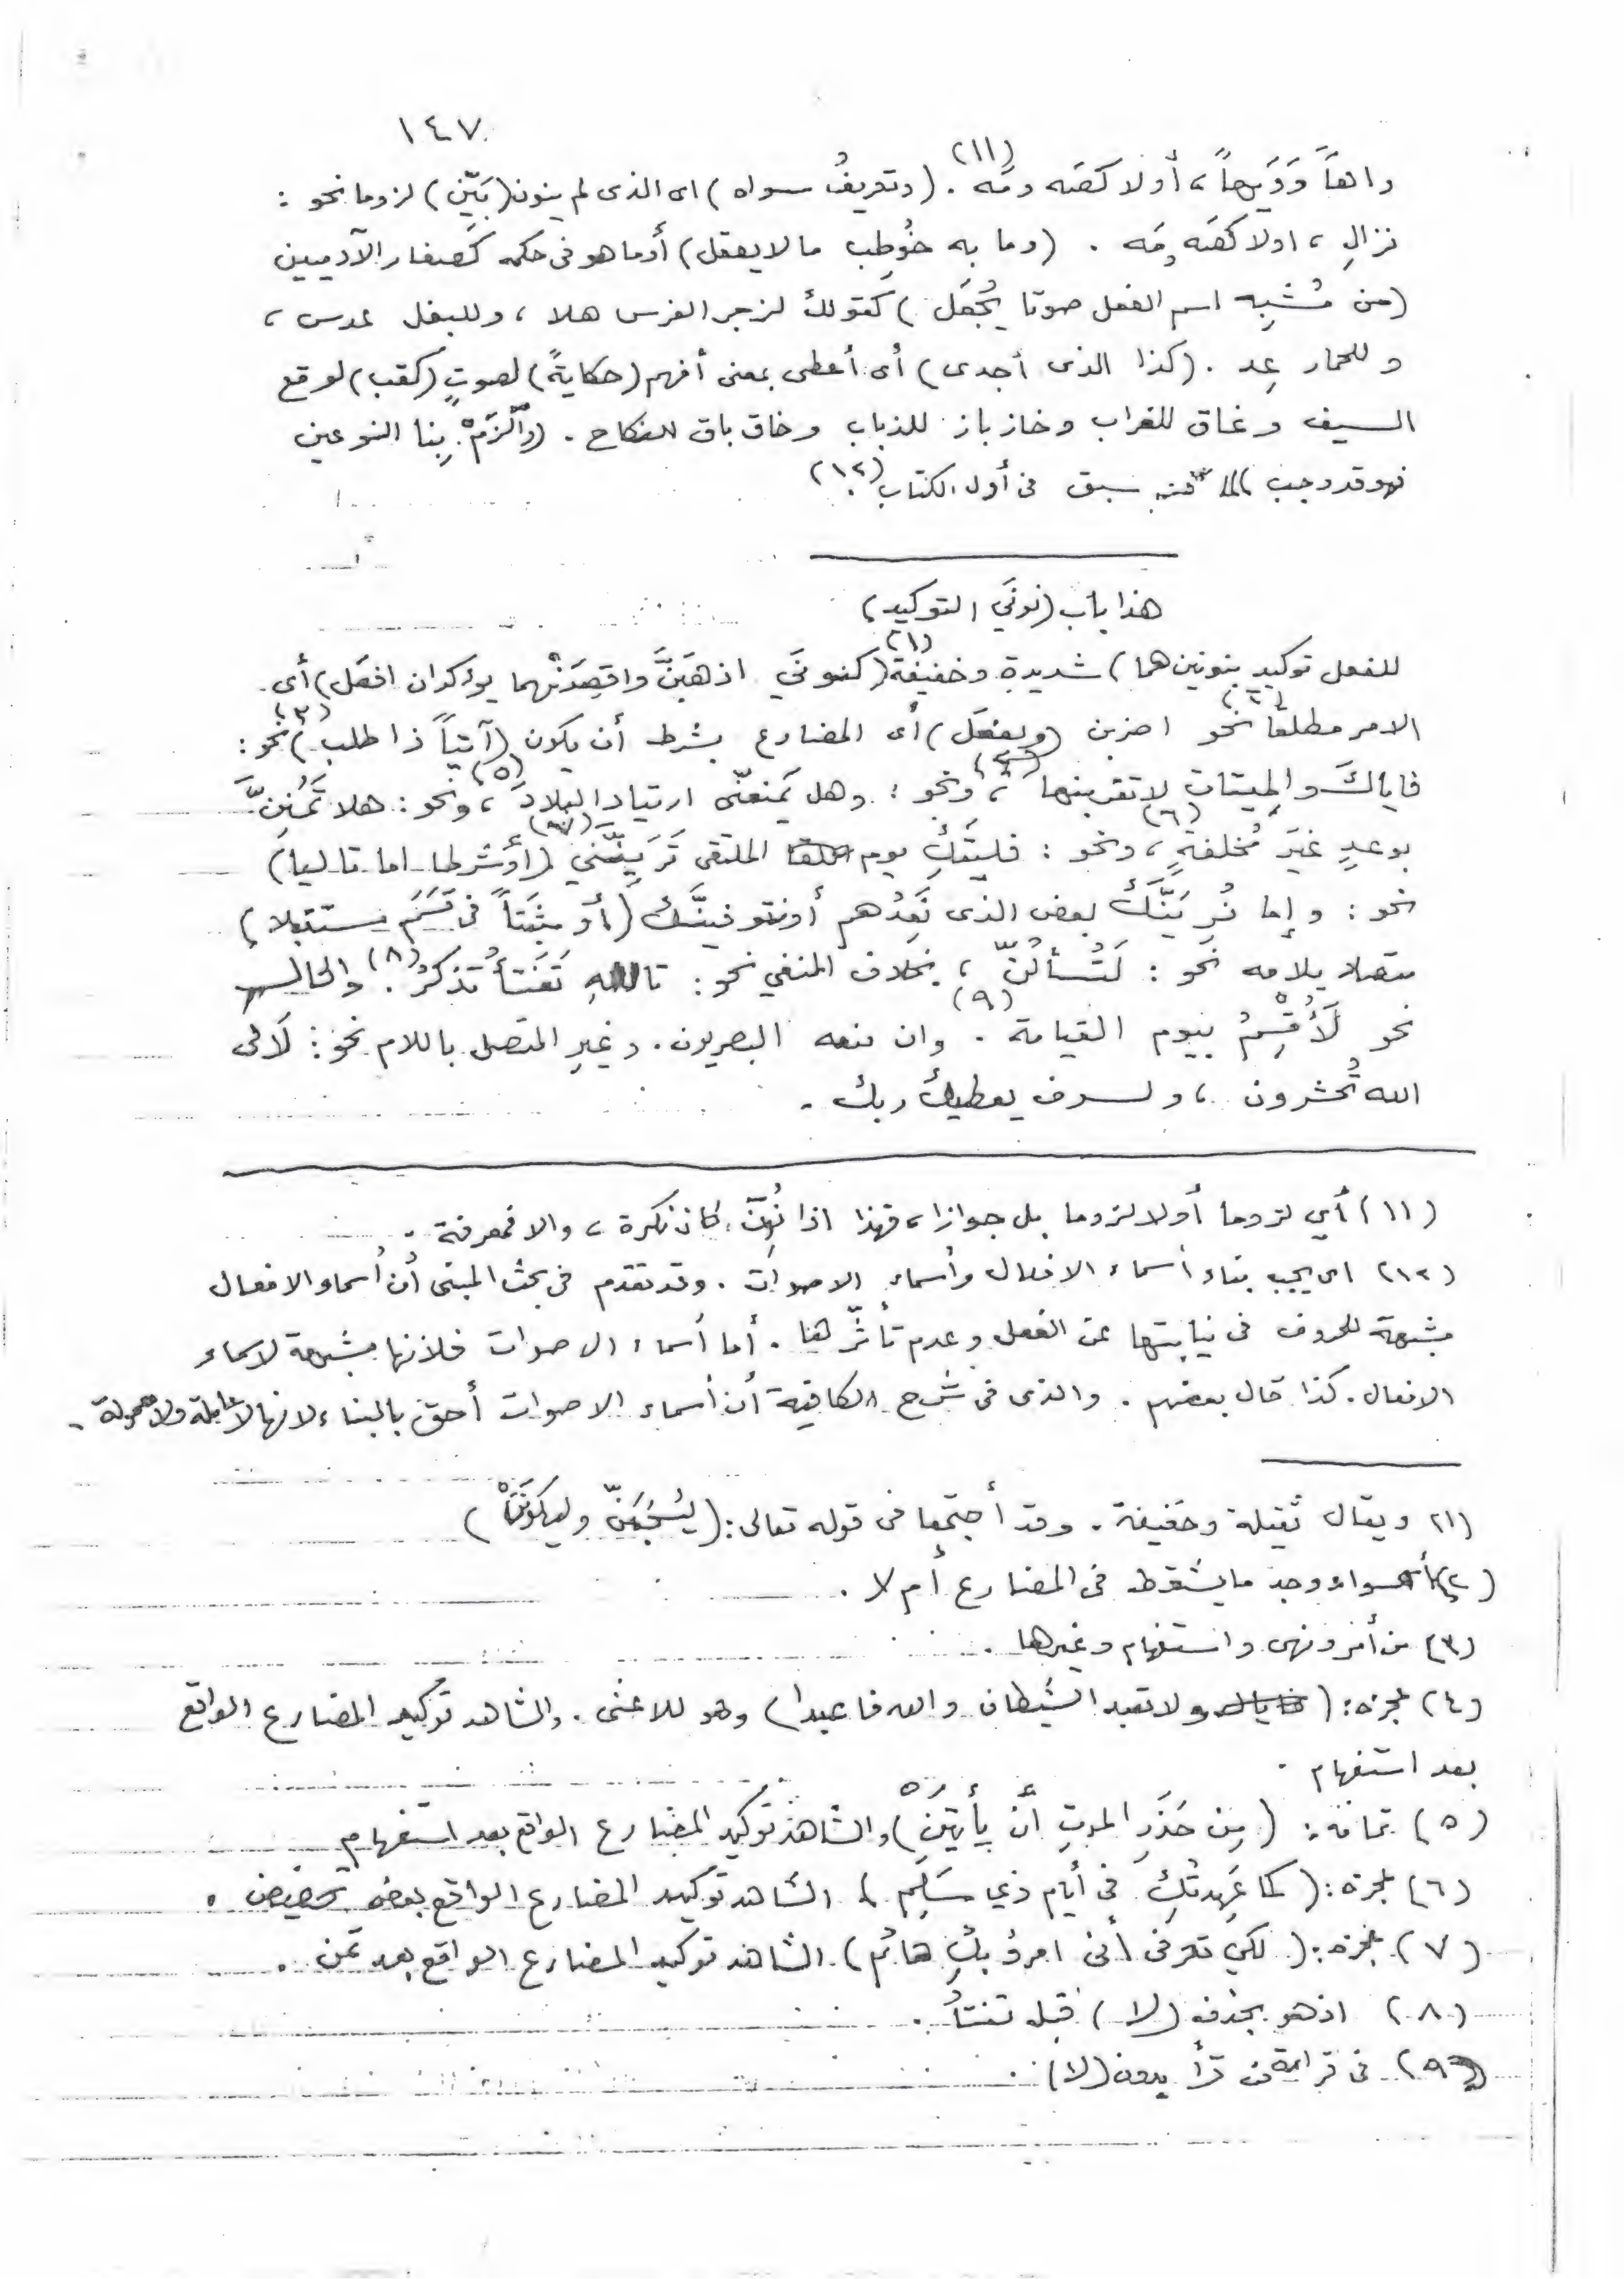 ١٤٧
واهاً وَوَيهاً، أولا كصَه ومَه (١١). (وتعريفُ سواه) اى الذى لم ينون (بَيِّن) لزوما نحو :
نزالِ ، اولا كصَه ومَه . (وما به خُوطِب ما لا يعقل) أوما هو فى حكمه كصغار الآدميين
(من مُشْبِه اسم الفعل صوتا يُجْعَل) كقولك لزجر الفرس هلا ، وللبغل عدس ،
وللحمار عِد . (كذا الذى أجدى) أى أعطى بمعنى أفهم (حكايةً) لصوتٍ (كقب) لوقع
السيف وغاق للغراب وخاز باز للذباب وخاق باق للنكاح . (والْزَمْ بِنا النوعين
فهو قد وجب) لما سبق فى أول الكتاب (١٢).
هذا باب (نونَي التوكيد)
للفعل توكيد بنونين هما) شديدةٍ وخفيفة (١) (كنونَي اذهَبَنَّ واقصِدَنْهما يؤكدان افعَل) أى
الامر مطلقا (٢) نحو اضربن (ويفعَل) أى المضارع بشرط أن يكون (آتياً ذا طلب) (٣) نحو :
فاياكَ والميتاتِ لا تقربنها (٤) ، ونحو : وهل يَمنعنّى ارتيادِ البلادَ (٥) ، ونحو : هلا تَمُنِنّ
بوعدٍ غيَر مُخلفةٍ (٦) ، ونحو : فليتَكِ يوم الملتقى تَرَيِنَّني (٧) (أوشرطا اما تاليا)
نحو : وإما نُرِيَنَّكَ بعض الذى نَعِدُهم أونتوفينَّك (أو مثبَتاً فى قَسَمَ مستقبلا)
متصلا بلامه نحو : لَتُسألُنّ ، بخلاف المنفي نحو : تاللهِ تَفتَأُ تذكرُ (٨) . والحال
نحو لَأُقْسِمُ بيوم القيامة (٩) . وان منعه البصريون . وغيرِ المتصل باللام نحو : لَالى
الله تُحشرون ، ولسوف يعطيكَ ربك .
(١١) أي لزوما أولا لزوما بل جوازا ، فهذا اذا نُوِّنَ كان نكرة ، والا فمعرفة .
(١٢) اى يجب بناء أسماء الافعال وأسماء الاصوات . وقد تقدم فى بحث المبنى أن أسماء الافعال
مشبهة للحروف فى نيابتها عن الفعل وعدم تأثّرها . أما أسماء الاصوات فلانها مشبهة لاسماء
الافعال . كذا قال بعضهم . والذى فى شرح الكافية أن أسماء الاصوات أحق بالبناء لانها لا عاملة ولا معمولة .
(١) ويقال ثقيلة وخفيفة . وقد أجتمعا فى قوله تعالى : (ليُسْجَنَنّ وليكونَنْ)
(٢) أى سواء وجد ما يشترط فى المضارع أم لا .
(٣) من أمر ونهى واستفهام وغيرها .
(٤) عجزه : (ولا تعبد الشيطان والله فاعبدا) وهو للاعشى . والشاهد توكيد المضارع الواقع
بعد استفهام .
(٥) تمامه : (مِن حَذَرِ الموتِ أنْ يأتيَنْ) والشاهد توكيد المضارع الواقع بعد استفهام
(٦) عجزه : (كما عَهِدتُكِ فى أيام ذي سَلَم) الشاهد توكيد المضارع الواقع بعد تحضيض .
(٧) عجزه : (لكي تعرفى أنى امرؤ بكِ هائم) . الشاهد توكيد المضارع الواقع بعد تمن .
(٨) اذ هو بحذف (لا) قبل تفتأُ .
(٩) فى قراءة من قرأ بدون (لا) .